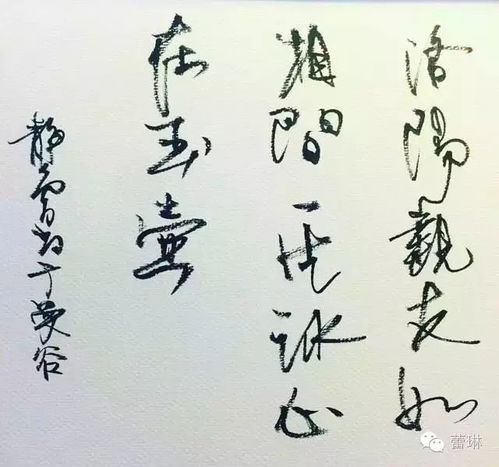 洛陽親友如
相問一片冰心
在玉壺
静于曼谷
蕾琳